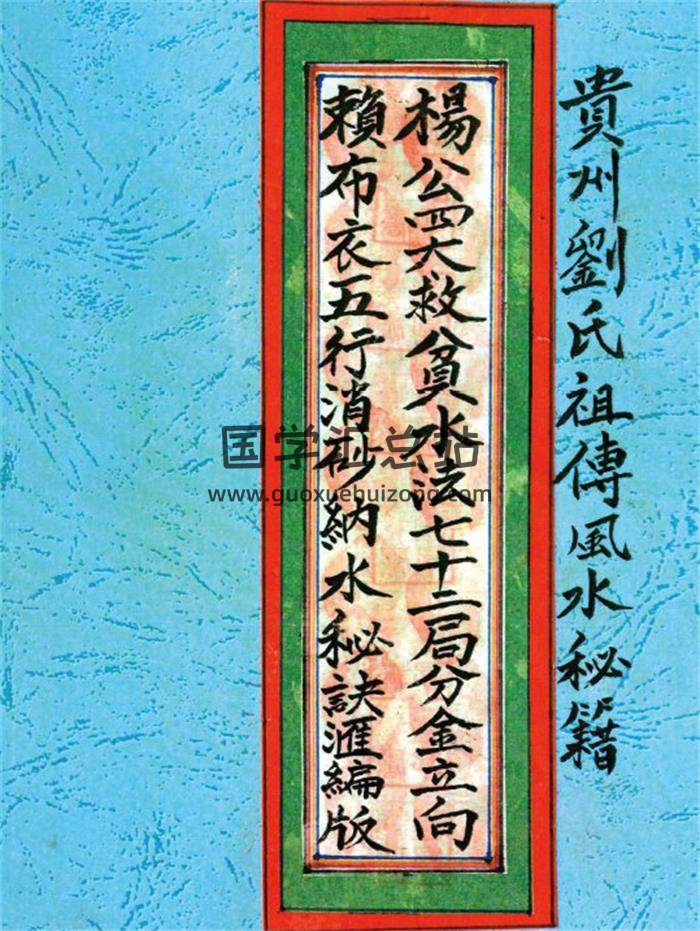 貴州劉氏祖傳風水秘籍
楊公四大救貧水法七十二局分金立向
賴布衣五行消砂納水秘訣滙編版
国学汇总站
www.guoxuehuizong.com